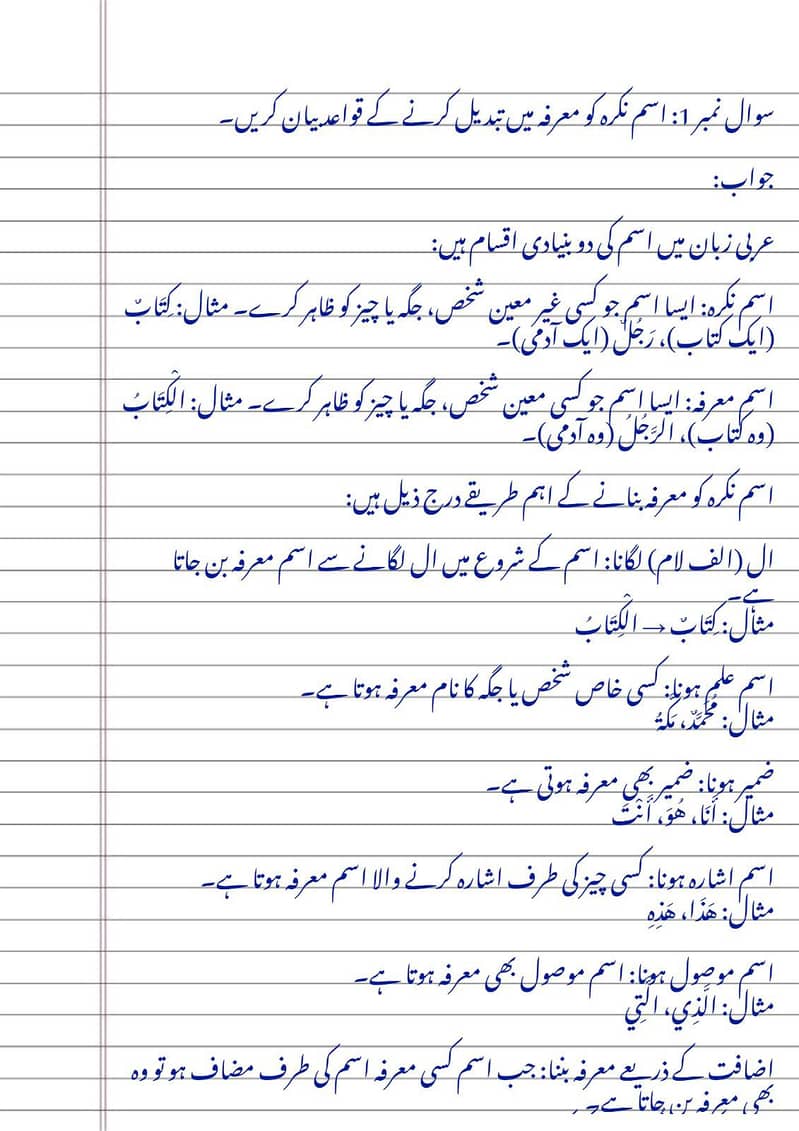 سوال نمبر 1: اسم نکرہ کو معرفہ میں تبدیل کرنے کے قواعد بیان کریں۔
جواب:
عربی زبان میں اسم کی دو بنیادی اقسام ہیں:
اسم نکرہ: ایسا اسم جو کسی غیر معین شخص، جگہ یا چیز کو ظاہر کرے۔ مثال: كِتَابٌ
(ایک کتاب)، رَجُلٌ (ایک آدمی)۔
اسم معرفہ: ایسا اسم جو کسی معین شخص، جگہ یا چیز کو ظاہر کرے۔ مثال: الْكِتَابُ
(وہ کتاب)، الرَّجُلُ (وہ آدمی)۔
اسم نکرہ کو معرفہ بنانے کے اہم طریقے درج ذیل ہیں:
ال (الف لام) لگانا: اسم کے شروع میں ال لگانے سے اسم معرفہ بن جاتا
ہے۔
مثال: كِتَابٌ → الْكِتَابُ
اسم علم ہونا: کسی خاص شخص یا جگہ کا نام معرفہ ہوتا ہے۔
مثال: مُحَمَّدٌ، مَكَّةُ
ضمیر ہونا: ضمیر بھی معرفہ ہوتی ہے۔
مثال: أَنَا، هُوَ، أَنْتَ
اسم اشارہ ہونا: کسی چیز کی طرف اشارہ کرنے والا اسم معرفہ ہوتا ہے۔
مثال: هَذَا، هَذِهِ
اسم موصول ہونا: اسم موصول بھی معرفہ ہوتا ہے۔
مثال: الَّذِي، الَّتِي
اضافت کے ذریعے معرفہ بننا: جب اسم کسی معرفہ اسم کی طرف مضاف ہو تو وہ
بھی معرفہ بن جاتا ہے۔